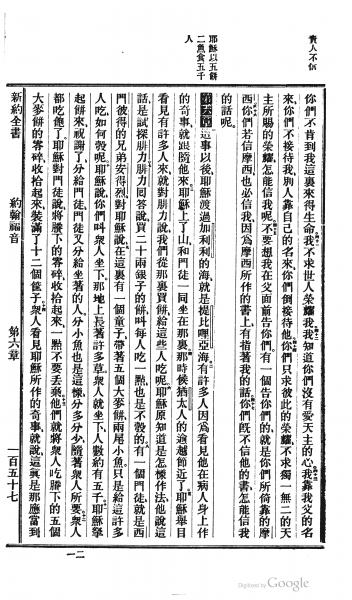 責人不信
耶穌以五餅
二魚食五千
人
你們不肯到我這裏來得生命我不求世人榮耀我我知道你們沒有愛天主的心我靠我父的名
來你們不接待我別人靠自己的名來你們倒接待他你們只求彼此的榮耀不求獨一無二的天
主所賜的榮耀怎能信我呢不要想我在父面前告你們有一個告你們的就是你們所倚靠的摩
西你們若信摩西也必信我因爲摩西所作的書上有指著我的話你們旣不信他的書怎能信我
的話呢
第六章這事以後耶穌渡過加利利的海就是提比哩亞海有許多人因爲看見他在病人身上作
的奇事就跟隨他來耶穌上了山和門徒一同坐在那裏那時候猶太人的逾越節近了耶穌舉目
看見有許多人來就對腓力說我們從那裏買餅給這些人吃呢耶穌原知道是怎樣作法他說這
話是試探腓力腓力回答說買二十兩銀子的餅叫每人吃一點也是不彀的有一個門徒就是西
門彼得的兄弟安得烈對耶穌說在這裏有一個童子帶著五個大麥餅兩尾小魚只是給這許多
人吃如何彀呢耶穌說你們叫衆人坐下那地上長著許多草衆人就坐下人數約有五千耶穌拏
起餅來祝謝了分給門徒門徒又分給坐著的人分小魚也是這樣分多分少隨著衆人所要衆人
都吃飽了耶穌對門徒說將賸下的零碎收拾起來一點不要丟棄他們就將衆人吃賸下的五個
大麥餅的零碎收拾起來裝滿了十二個筐子衆人看見耶穌所作的奇事就說這眞是那應當到
新約全書 約翰福音 第六章 一百五十七
二一
Digitized by Google